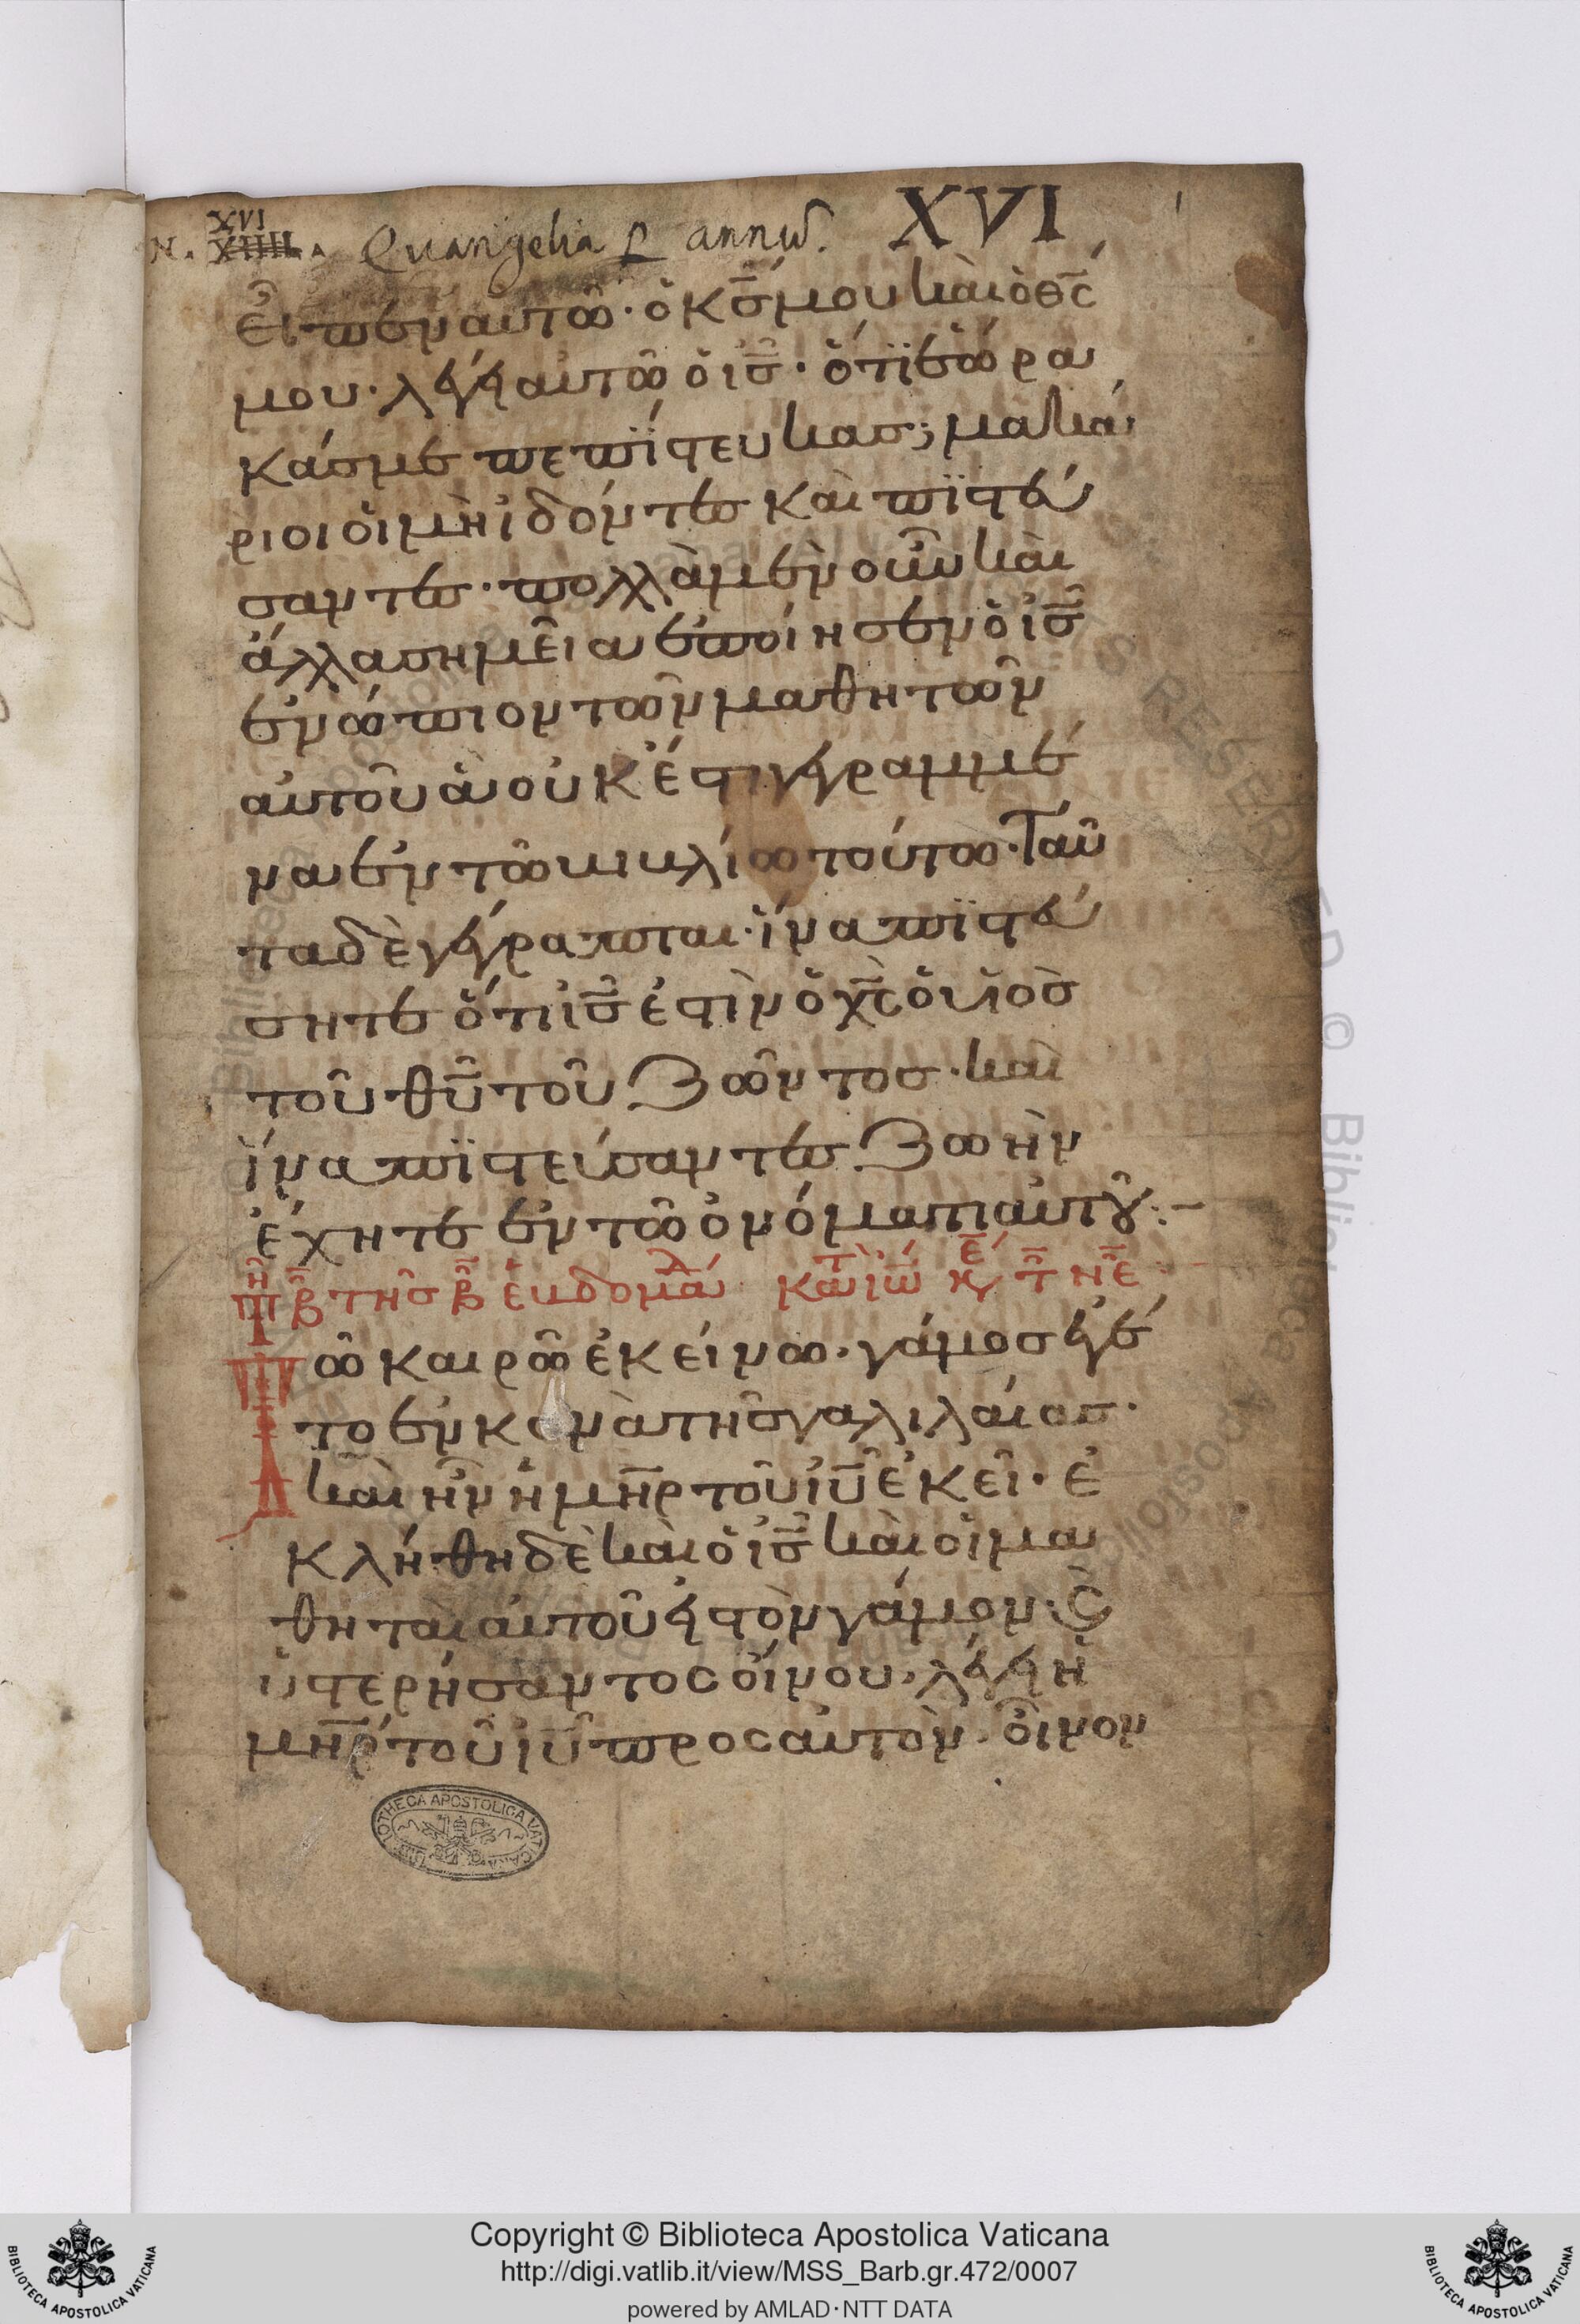 XVI
N. XIIII. Evangelia p annũ. XVI 1
εἶπεν αυτῶ· ὁ κ̅ς̅ μου καὶ ὁ θ̅ς̅
μου· λέγει αὐτῶ ὁ ι̅ς̅· ὅτι ἑώρα
κάς με πεπίστευκας; μακά
ριοι οἱ μὴ ἰδόντες καὶ πιστεύ
σαντες· πολλὰ μὲν οὖν καὶ
ἄλλα σημεῖα ἐποίησεν ὁ ι̅ς̅
ἐνώπιον τῶν μαθητῶν
αὐτοῦ ἃ οὐκ ἔστι γεγραμμέ
να ἐν τῶ βιβλίω τούτω· Ταῦ
τα δὲ γέγραπται· ἵνα πιστεύ
σητε ὅτι ι̅ς̅ ἐστὶν ὁ χ̅ς̅ ὁ υἱὸς
τοῦ θ̅υ̅ τοῦ ζῶντος· καὶ
ἵνα πιστεύσαντες ζωὴν
ἔχητε ἐν τῶ ὀνόματι αὐτοῦ:–
τῆ β̅ τῆς β̅ ἑβδομάδ κατ ἰω
Τῶ καιρῶ ἐκείνω· γάμος ἐγέ
το ἐν κανὰ τῆς γαλιλαίας·
καὶ ἦν ἡ μ̅η̅ρ̅ τοῦ ι̅υ̅ ἐκεῖ· ἐ
κλήθη δὲ καὶ ὁ ι̅ς̅ καὶ οἱ μα
θηταὶ αὐτοῦ εἰς τὸν γάμον· ϗ
ὑστερήσαντος οἴνου· λέγει ἡ
μ̅η̅ρ̅ τοῦ ι̅υ̅ προς αὐτὸν· οἶνον
BIBLIOTHECA APOSTOLICA VATICANA
Copyright © Biblioteca Apostolica Vaticana
http://digi.vatlib.it/view/MSS_Barb.gr.472/0007
powered by AMLAD·NTT DATA
BIBLIOTECA APOSTOLICA VATICANA
BIBLIOTECA APOSTOLICA VATICANA